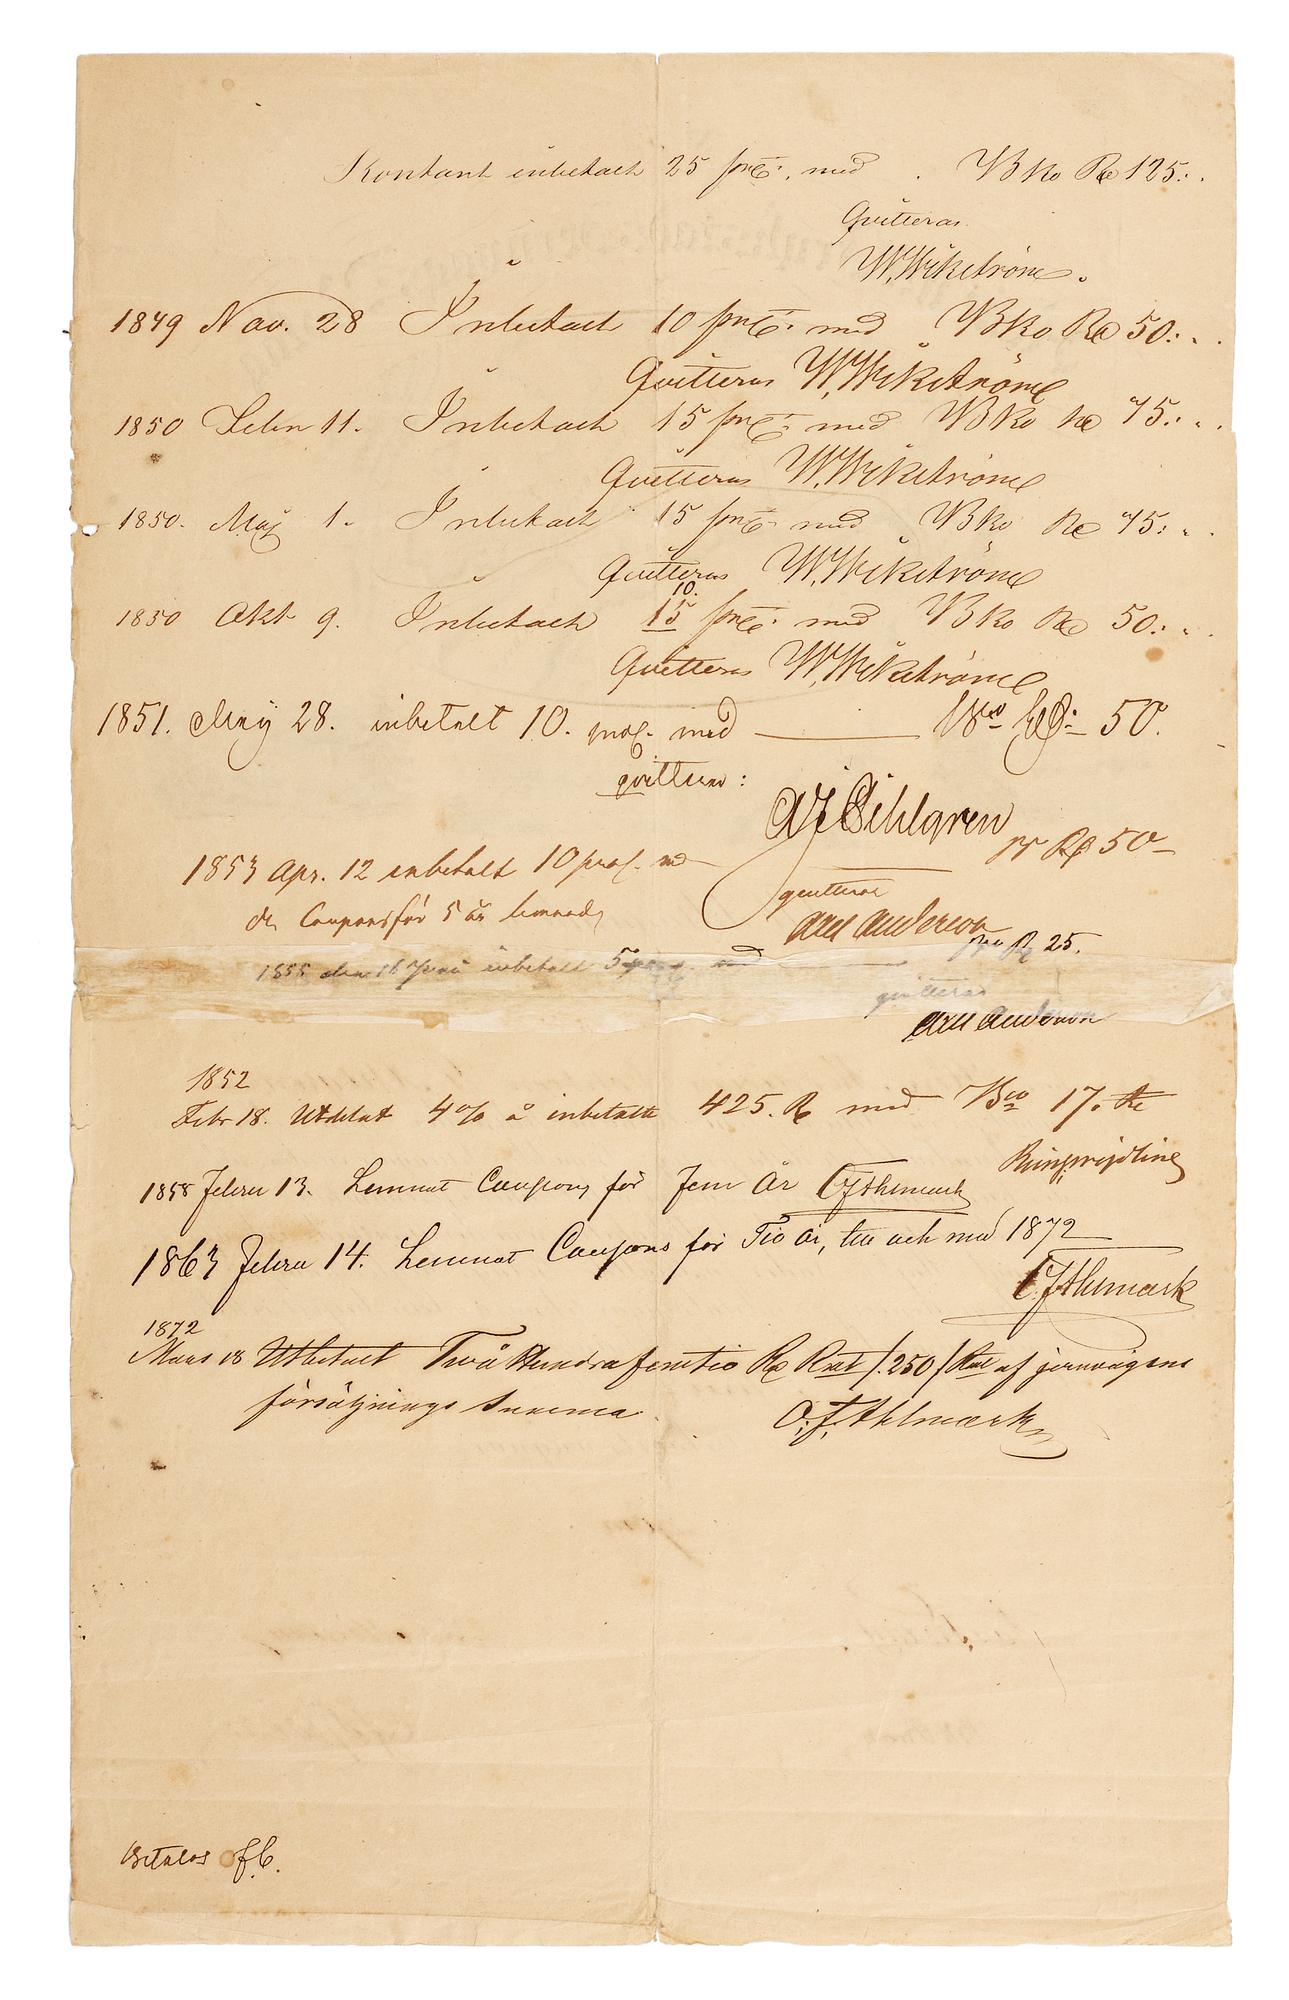 Kontant inbetalt 25 prCt. med B:ko Rd 125: "
Qvitteras
W. Wikström.
1849 Nov. 28 Inbetalt 10 prCt. med B:ko Rd 50: "
Qvitteras W. Wikström
1850 Febr 11. Inbetalt 15 prCt. med B:ko Rd 75: "
Qvitteras W. Wikström
1850. Maj 1. Inbetalt 15 prCt. med B:ko Rd 75: "
Qvitteras W. Wikström
10.
1850 Okt 9. Inbetalt 15 prCt. med B:ko Rd 50: "
Qvitteras W. Wikström
1851. Maij 28. inbetalt 10. med B:co 50.
qvitteras:
1853 Apr. 12 inbetalt 10 proc. med Rd 50
qvitteras
Coupons för 5 år
Axel Anderson
den 16 Juni inbetalt 5 med Rd 25.
qvitteras
Axel Anderson
1852
Febr 18. Utdelat 4% å inbetalte 425. Rd med B:co 17. Rd
1858 Febru 13. Lemnat Coupons för Fem År OF Ahlmark
1863 Febru 14. Lemnat Coupons för Tio år, till och med 1872
OF Ahlmark
1872
Mars 18 Utbetalt Två Hundra femtio Rd Rmt /: 250 / Rmt af jernvägens
försäljnings Summa O. F. Ahlmark
Betalas